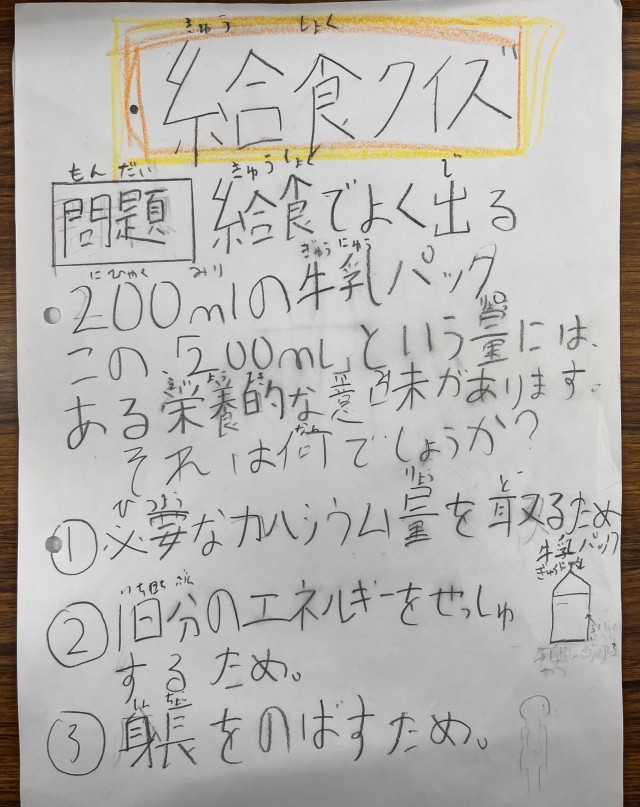 きゅう しょく
給食クイズ
もん だい
問題
きゅう しょく で
給食でよく出る
にひゃく みり ぎゅう にゅう
200mlの牛乳パック
りょう
この「200mL」という量には、
えい よう てき み
ある栄養的な意味があります。
それは何でしょうか?
ひ つよう りょう と
①必要なカルシウム量を取るため
牛乳パック
ぎゅうにゅう
いち にち ぶん
②1日分のエネルギーをせっしゅ
するため。
しん ちょう
③身長をのばすため。